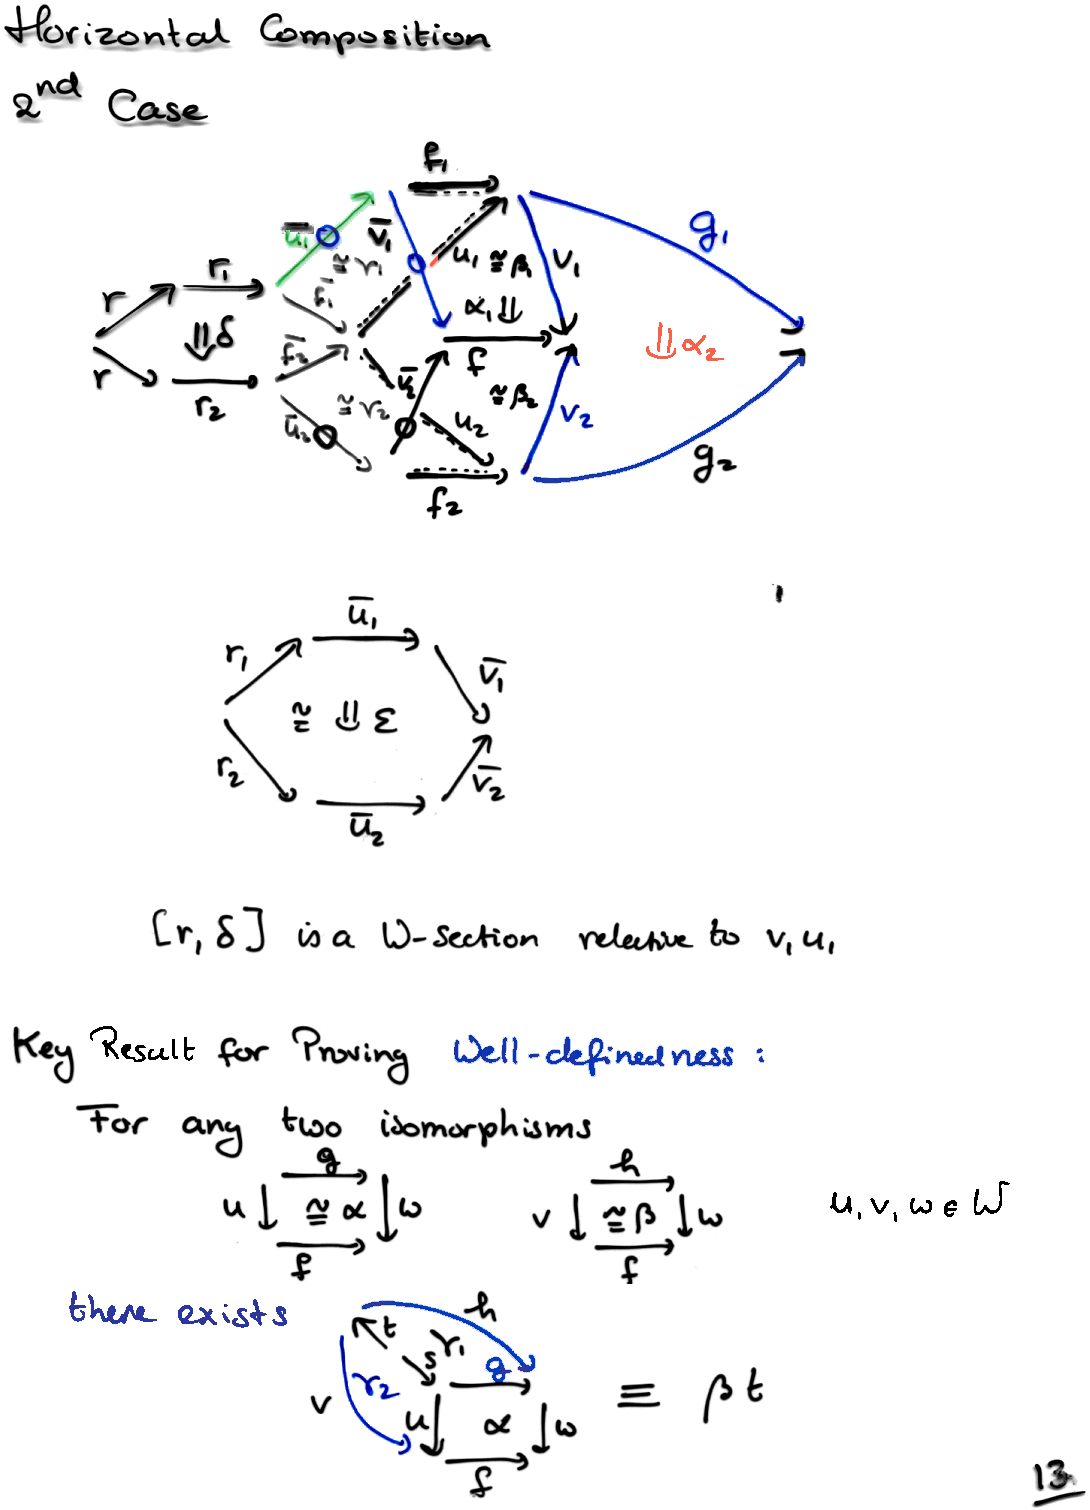 Horizontal Composition
2nd Case
f₁
u̅₁ v̅₁ g₁
≅ γ₁ u₁ ≅ β₁ v₁
r r₁ f̅₁ α₁ ⇓
⇓ δ f̅₂ f ⇓ α₂
r r₂ ≅ γ₂ v̅₂ ≅ β₂
u̅₂ u₂ v₂ g₂
f₂
u̅₁
r₁ v̅₁
≅ ⇓ ε
r₂ v̅₂
u̅₂
[r, δ] is a W-section relative to v₁u₁
Key Result for Proving Well-definedness :
For any two isomorphisms
g h
u ≅ α w v ≅ β w u, v, w ∈ W
f f
there exists h
t s γ₁ g
v γ₂ u α w ≡ β t
f
13